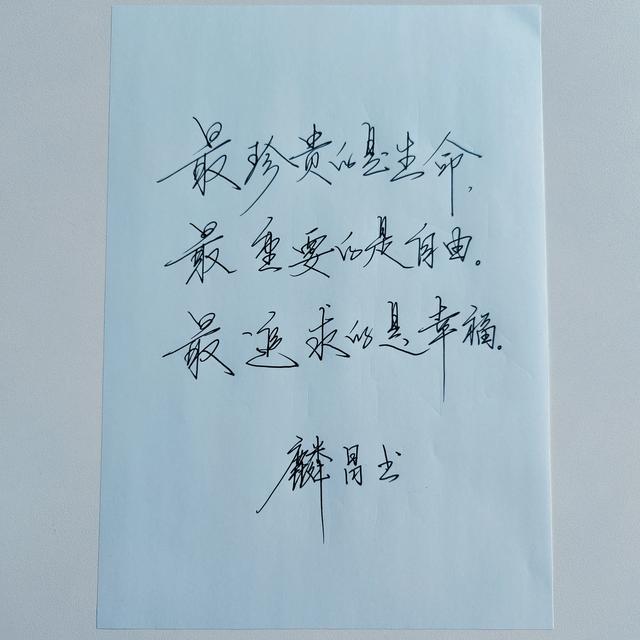 最珍贵的是生命，
最重要的是自由。
最追求的是幸福。
麟昌书